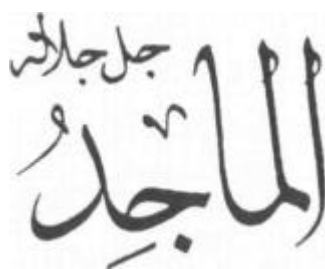 جل جلاله
الماجدُ